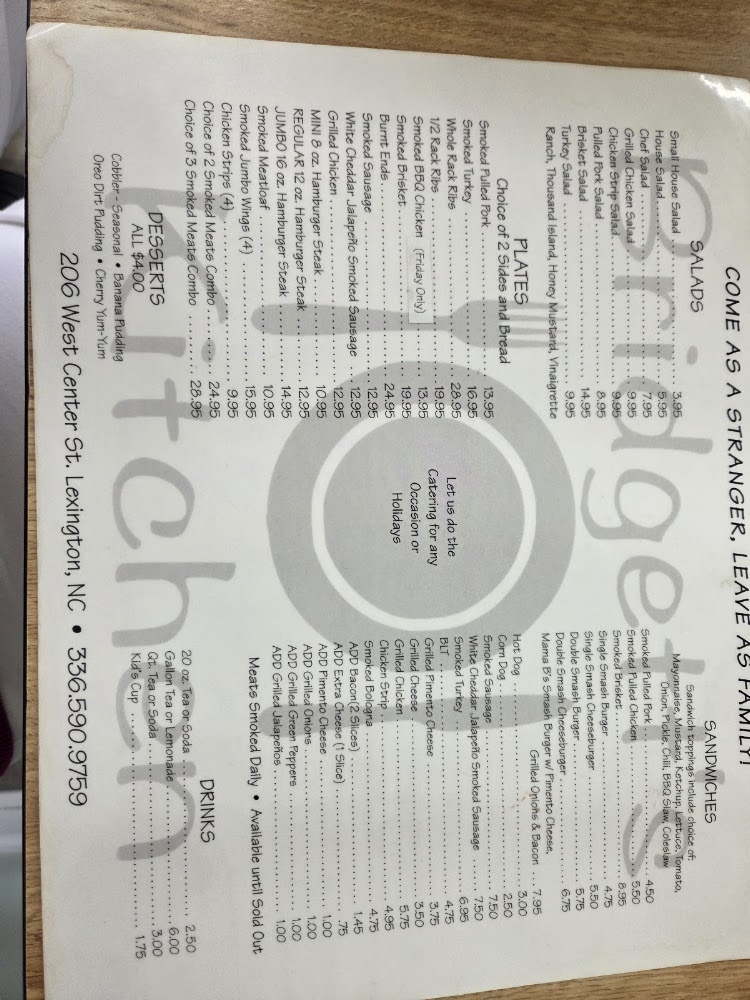 COME AS A STRANGER, LEAVE AS FAMILY!
Bridget's
Kitchen
SALADS
Small House Salad 3.95
House Salad 5.95
Chef Salad 7.95
Grilled Chicken Salad 9.95
Chicken Strip Salad 9.95
Pulled Pork Salad 8.95
Brisket Salad 14.95
Turkey Salad 9.95
Ranch, Thousand Island, Honey Mustard, Vinaigrette
PLATES
Choice of 2 Sides and Bread
Smoked Pulled Pork 13.95
Smoked Turkey 16.95
Whole Rack Ribs 28.95
1/2 Rack Ribs 19.95
Smoked BBQ Chicken (Friday Only) 13.95
Smoked Brisket 19.95
Burnt Ends 24.95
Smoked Sausage 12.95
White Cheddar Jalapeño Smoked Sausage 12.95
Grilled Chicken 12.95
MINI 8 oz. Hamburger Steak 10.95
REGULAR 12 oz. Hamburger Steak 12.95
JUMBO 16 oz. Hamburger Steak 14.95
Smoked Meatloaf 10.95
Smoked Jumbo Wings (4) 15.95
Chicken Strips (4) 9.95
Choice of 2 Smoked Meats Combo 24.95
Choice of 3 Smoked Meats Combo 28.95
DESSERTS
ALL $4.00
Cobbler - Seasonal • Banana Pudding
Oreo Dirt Pudding • Cherry Yum-Yum
Let us do the
Catering for any
Occasion or
Holidays
SANDWICHES
Sandwich toppings include choice of:
Mayonnaise, Mustard, Ketchup, Lettuce, Tomato,
Onion, Pickle, Chili, BBQ Slaw, Coleslaw
Smoked Pulled Pork 4.50
Smoked Pulled Chicken 5.50
Smoked Brisket 8.95
Single Smash Burger 4.75
Single Smash Cheeseburger 5.50
Double Smash Burger 5.75
Double Smash Cheeseburger 6.75
Mama B's Smash Burger w/ Pimento Cheese,
Grilled Onions & Bacon 7.95
Hot Dog 3.00
Corn Dog 2.50
Smoked Sausage 7.50
White Cheddar Jalapeño Smoked Sausage 7.50
Smoked Turkey 6.95
BLT 4.75
Grilled Pimento Cheese 3.75
Grilled Cheese 3.50
Grilled Chicken 5.75
Chicken Strip 4.95
Smoked Bologna 4.75
ADD Bacon(2 Slices) 1.45
ADD Extra Cheese (1 Slice) .75
ADD Pimento Cheese 1.00
ADD Grilled Onions 1.00
ADD Grilled Green Peppers 1.00
ADD Grilled Jalapeños 1.00
Meats Smoked Daily • Available until Sold Out
DRINKS
20 oz. Tea or Soda 2.50
Gallon Tea or Lemonade 6.00
Qt. Tea or Soda 3.00
Kid's Cup 1.75
206 West Center St. Lexington, NC • 336.590.9759